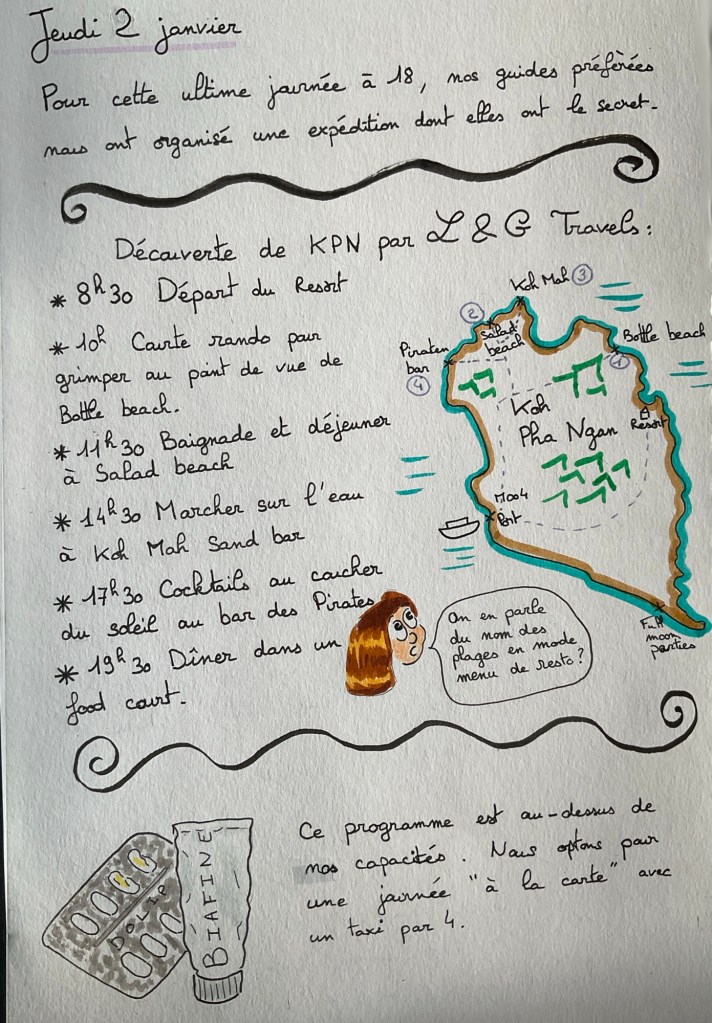 Jeudi 2 janvier
Pour cette ultime journée à 18, nos guides préférées
nous ont organisé une expédition dont elles ont le secret.
Découverte de KPN par L & G Travels :
* 8h30 Départ du Resort
* 10h Courte rando pour
grimper au point de vue de
Bottle beach.
* 11h30 Baignade et déjeuner
à Salad beach
* 14h30 Marcher sur l'eau
à Koh Mah Sand bar
* 17h30 Cocktails au coucher
du soleil au bar des Pirates
* 19h30 Dîner dans un
food court.
Koh Mah 3
2
Salad
beach
Bottle beach
1
Piraten
bar
4
Koh
Pha Ngan
Resort
Moo4
Port
Full
moon
parties
On en parle
du nom des
plages en mode
menu de resto ?
DOLIP
BIAFINE
Ce programme est au-dessus de
nos capacités. Nous optons pour
une journée "à la carte" avec
un taxi par 4.